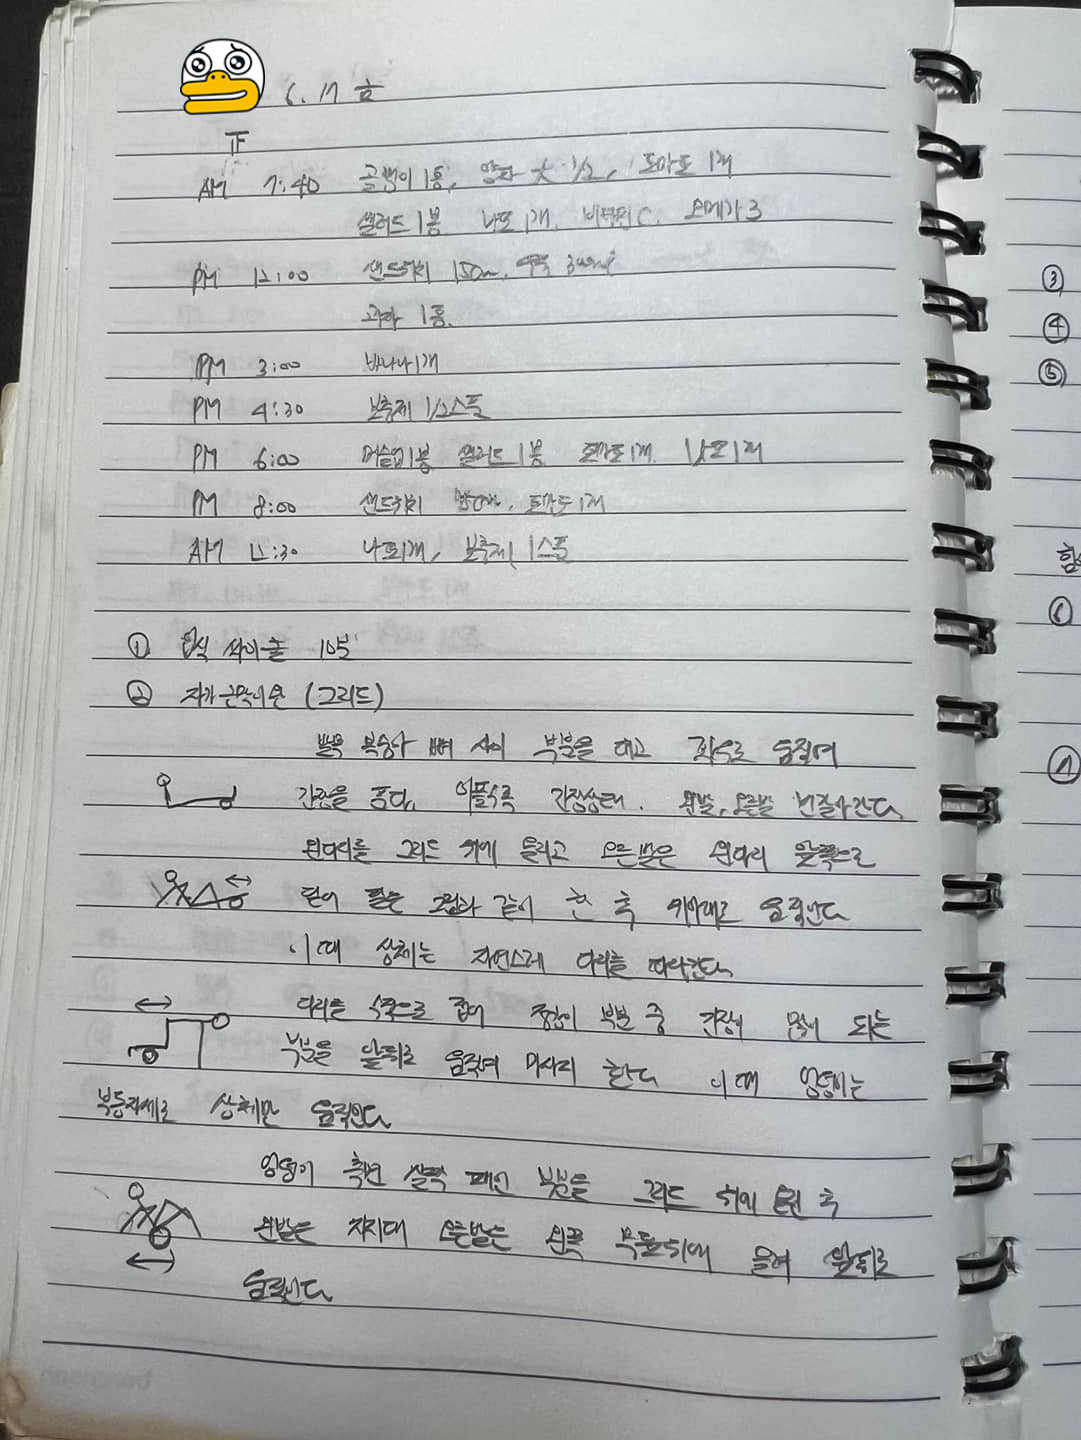 6. 17 금
正
AM 7:40 골뱅이 1통, 양파 大 1/2, 토마토 1개
샐러드 1봉 낫또 1개, 비타민C, 오메가3
PM 12:00 샌드위치 15cm, 우유
과자 1통.
PM 3:00 바나나 1개
PM 4:30 보충제 1/2스푼
PM 6:00 머슬업 1봉 샐러드 1봉 토마토 1개 낫또 1개
PM 8:00 샌드위치 토마토 1개
AM 11:30 낫또 1개, 보충제 1스푼
① 입식 싸이클 10분
② 자가근막이완 (그리드)
발목 복숭아 뼈 사이 부분을 대고 좌우로 움직여
긴장을 푼다. 아플수록 긴장상태. 왼발, 오른발 번갈아간다
왼다리를 그리드 위에 올리고 오른발은 왼다리 앞쪽으로
딛어 팔은 그림과 같이 한 후 위아래로 움직인다
이때 상체는 자연스레 다리를 따라간다
다리를 수직으로 접어 정강이 부분 중 긴장이 많이 되는
부분을 앞뒤로 움직여 마사지 한다 이때 엉덩이는
부동자세로 상체만 움직인다
엉덩이 측면 살짝 패인 부분을 그리드 위에 올린 후
왼발은 지지대 오른발은 왼쪽 무릎위에 올려 앞뒤로
움직인다
③
④
⑤
⑥
⑦